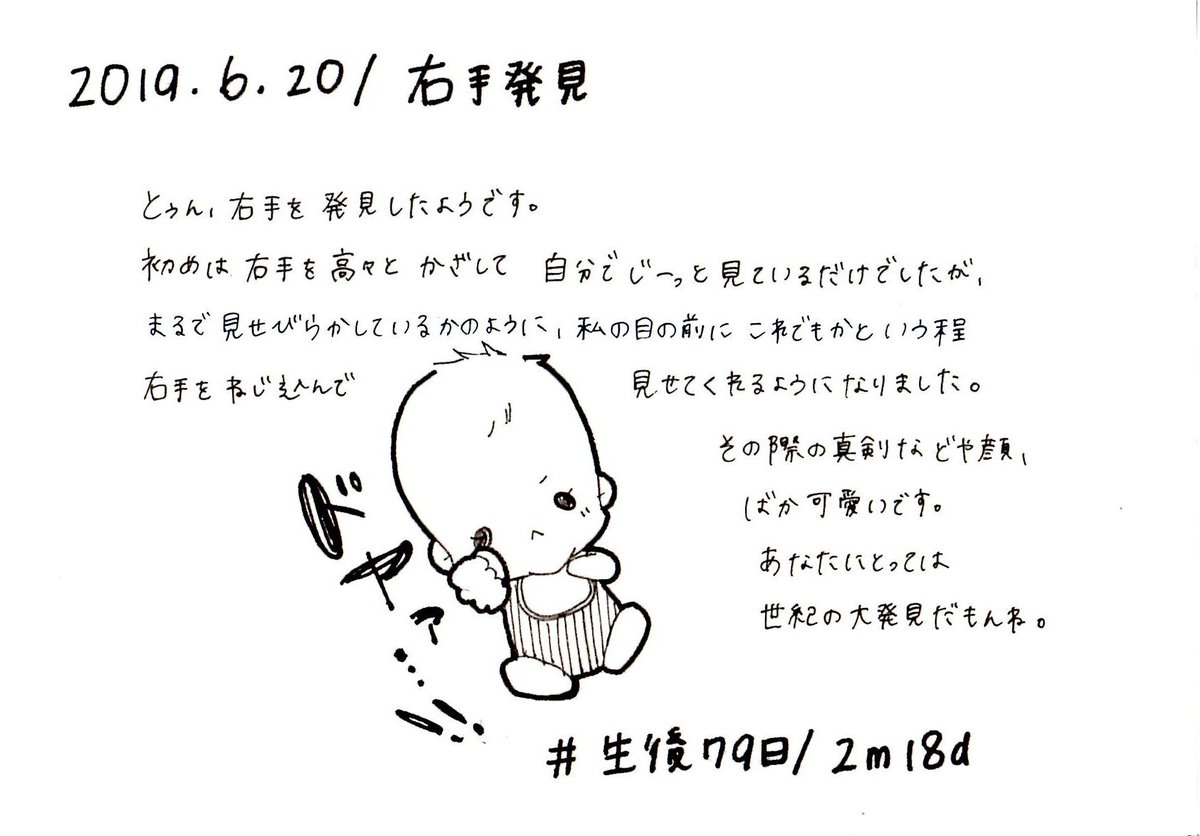 2019.6.20/右手発見
とぅん、右手を発見したようです。
初めは右手を高々とかざして 自分でじーっと見ているだけでしたが、
まるで見せびらかしているかのように、私の目の前にこれでもかという程
右手をねじ込んで 見せてくれるようになりました。
その際の真剣などや顔、
ばか可愛いです。
あなたにとっては
世紀の大発見だもんね。
ドヤァ…!!
#生後79日/2m18d